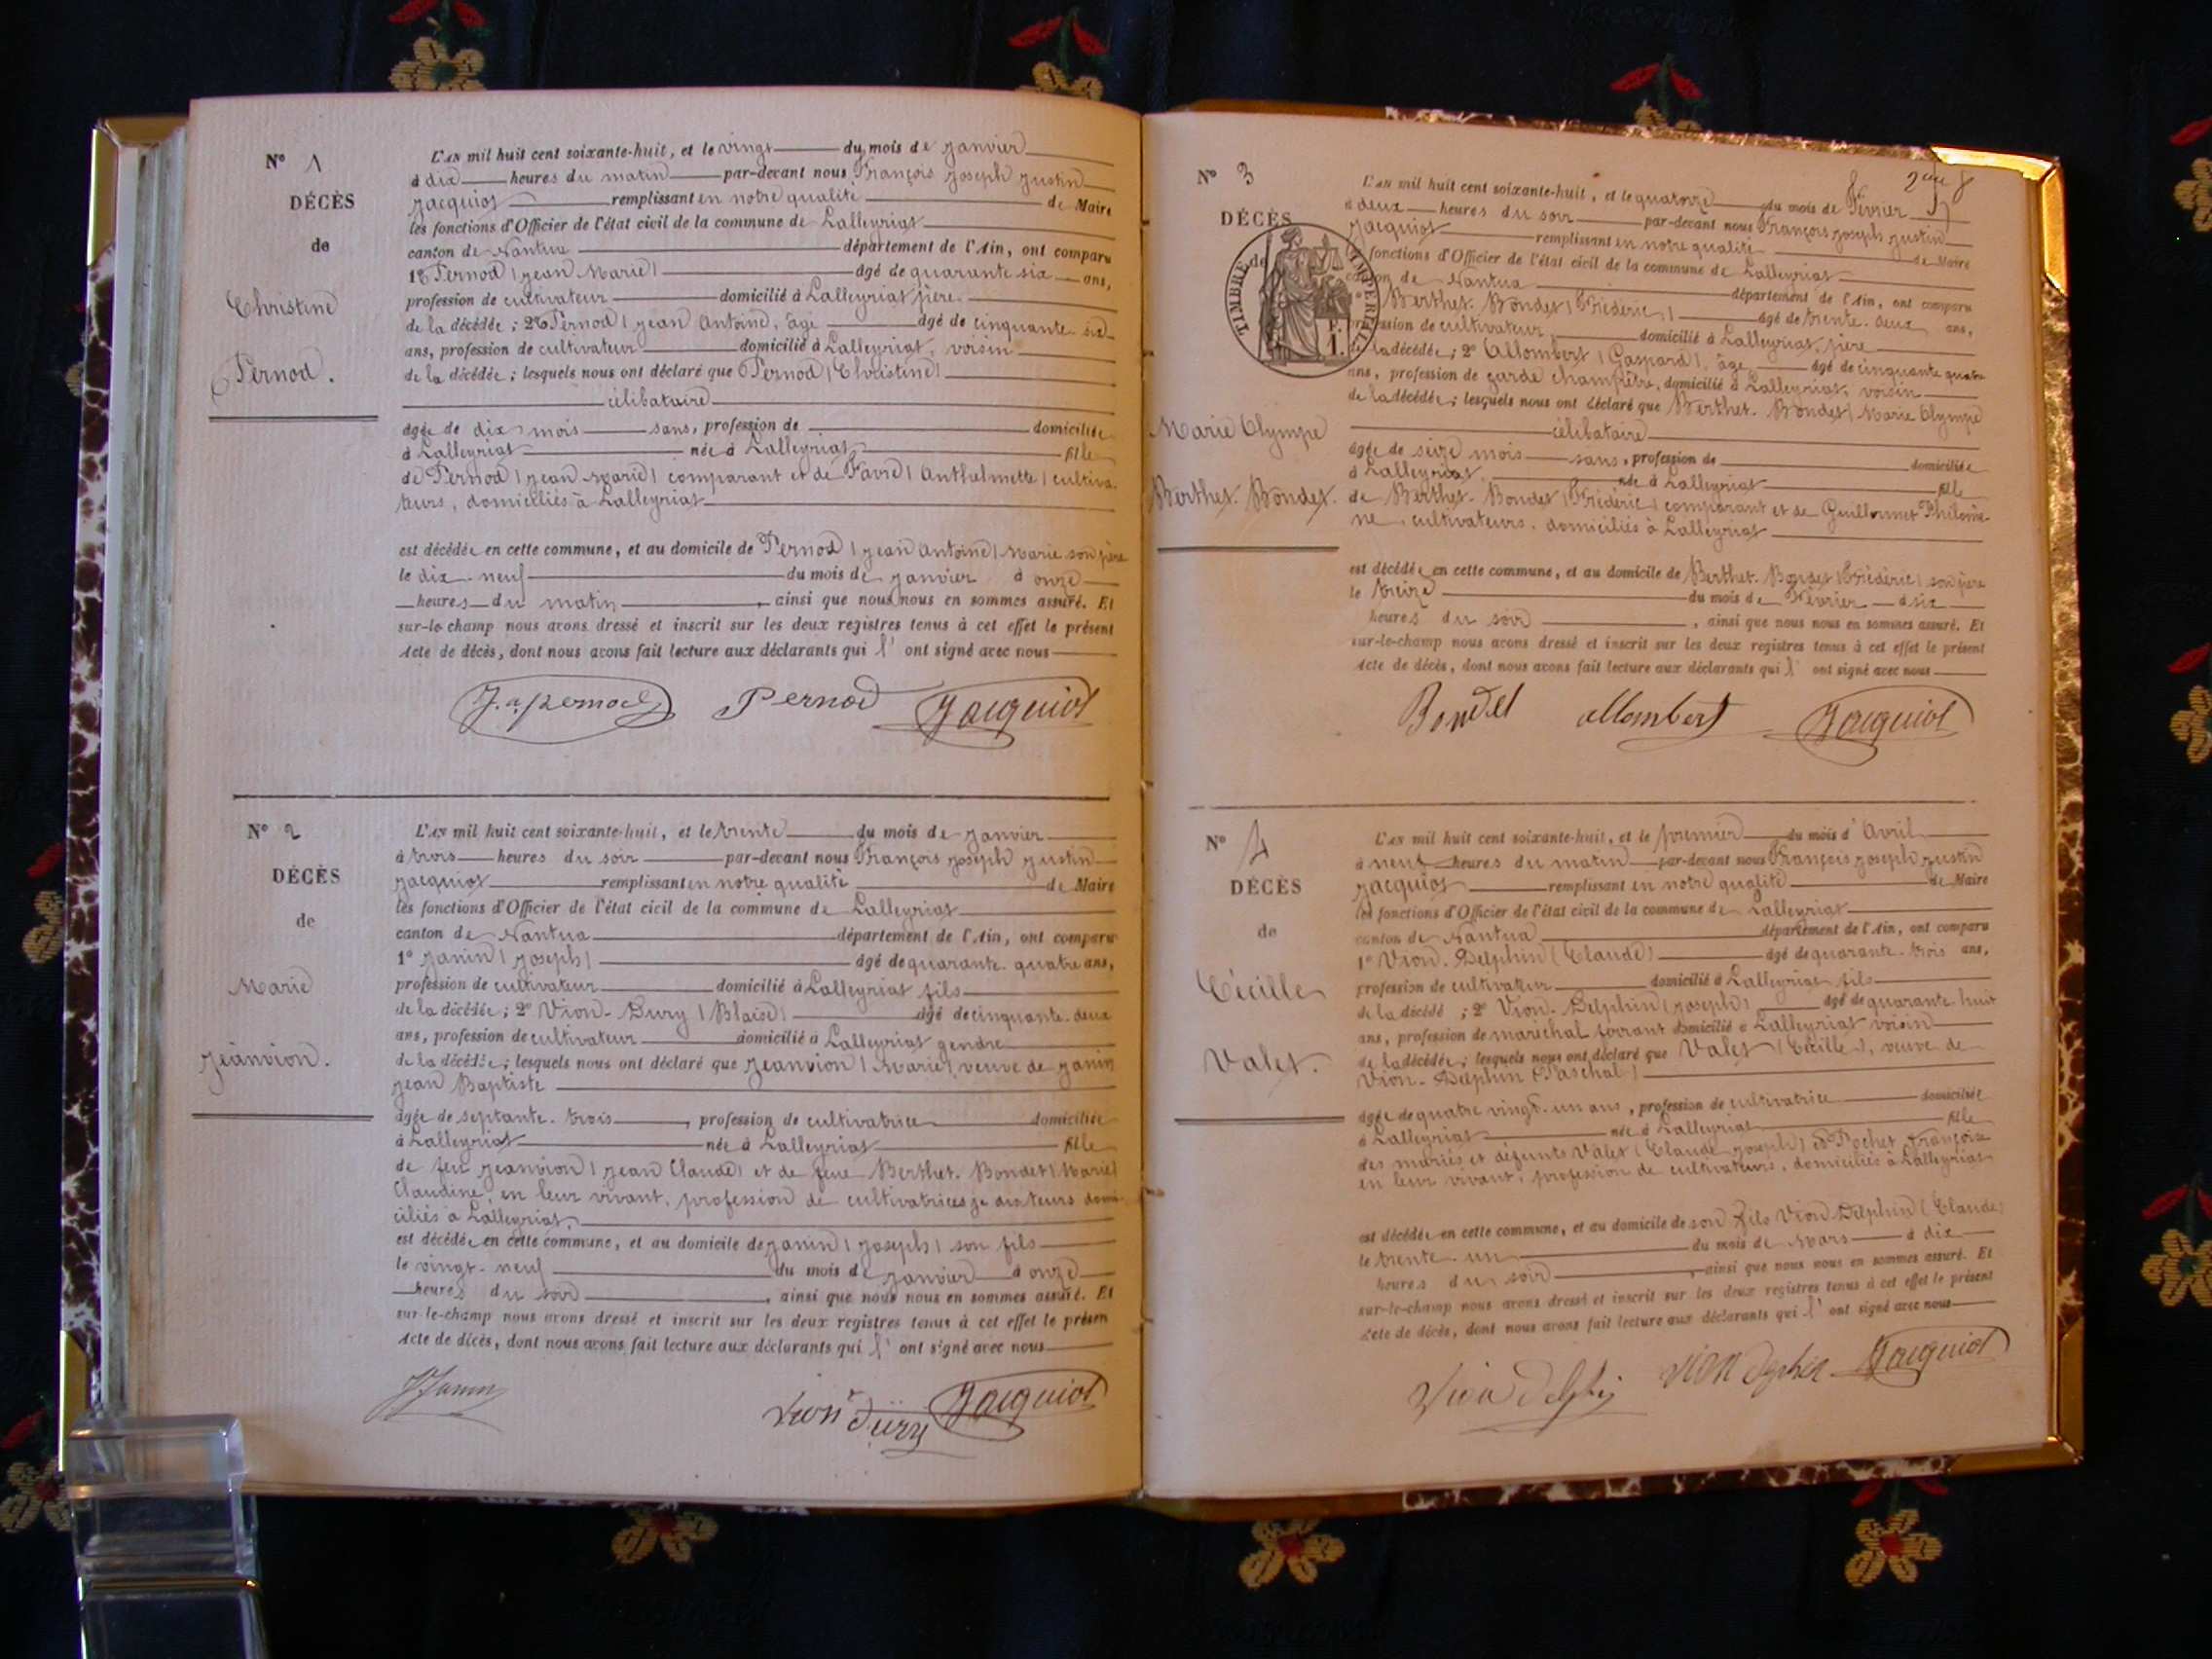 N° 1
DÉCÈS
de
Christine
Pernod.
L'AN mil huit cent soixante-huit, et le vingt du mois de janvier
à dix heures du matin par-devant nous François Joseph Justin
Jacquiot remplissant en notre qualité de Maire
les fonctions d'Officier de l'état civil de la commune de Lalleyriat
canton de Nantua département de l'Ain, ont comparu
1° Pernod (Jean Marie) âgé de quarante six ans,
profession de cultivateur domicilié à Lalleyriat père
de la décédée ; 2° Pernod (Jean Antoine, âgé âgé de cinquante six
ans, profession de cultivateur domicilié à Lalleyriat, voisin
de la décédée ; lesquels nous ont déclaré que Pernod (Christine)
célibataire
âgée de dix mois sans, profession de domiciliée
à Lalleyriat née à Lalleyriat fille
de Pernod (Jean Marie) comparant et de Favre (Anthelmette) cultiva-
teurs, domiciliés à Lalleyriat
est décédée en cette commune, et au domicile de Pernod (Jean Antoine) Marie son père
le dix-neuf du mois de janvier à onze
heures du matin, ainsi que nous nous en sommes assuré. Et
sur-le-champ nous avons dressé et inscrit sur les deux registres tenus à cet effet le présent
Acte de décès, dont nous avons fait lecture aux déclarants qui l' ont signé avec nous
J. a. pernod Pernod Jacquiot
N° 2
DÉCÈS
de
Marie
Jeanvion.
L'AN mil huit cent soixante-huit, et le trente du mois de janvier
à trois heures du soir par-devant nous François Joseph Justin
Jacquiot remplissant en notre qualité de Maire
les fonctions d'Officier de l'état civil de la commune de Lalleyriat
canton de Nantua département de l'Ain, ont comparu
1° Janin (Joseph) âgé de quarante-quatre ans,
profession de cultivateur domicilié à Lalleyriat fils
de la décédée ; 2° Vion-Dury (Blaise) âgé de cinquante-deux
ans, profession de cultivateur domicilié à Lalleyriat gendre
de la décédée ; lesquels nous ont déclaré que Jeanvion (Marie), veuve de Janin
Jean Baptiste
âgée de septante-trois, profession de cultivatrice domiciliée
à Lalleyriat née à Lalleyriat fille
de feu Jeanvion (Jean Claude) et de feue Berthet-Bondet (Marie)
Claudine, en leur vivant, profession de cultivatrices teurs domi-
ciliés à Lalleyriat,
est décédée en cette commune, et au domicile de Janin (Joseph) son fils
le vingt-neuf du mois de janvier à onze
heures du soir, ainsi que nous nous en sommes assuré. Et
sur-le-champ nous avons dressé et inscrit sur les deux registres tenus à cet effet le présen
Acte de décès, dont nous avons fait lecture aux déclarants qui l' ont signé avec nous
Janin Vion Dury Jacquiot
N° 3
DÉCÈS
de
TIMBRE IMPERIAL
1 F.
Marie Olympe
Berthet-Bondet.
L'AN mil huit cent soixante-huit, et le quatorze du mois de Février
à deux heures du soir par-devant nous François Joseph Justin
Jacquiot remplissant en notre qualité de Maire
les fonctions d'Officier de l'état civil de la commune de Lalleyriat
canton de Nantua département de l'Ain, ont comparu
Berthet-Bondet (Frédéric) âgé de trente-deux ans,
profession de cultivateur, domicilié à Lalleyriat, père
de la décédée ; 2° Allombert (Gaspard), âgé âgé de cinquante quatre
ans, profession de garde champêtre, domicilié à Lalleyriat, voisin
de la décédée ; lesquels nous ont déclaré que Berthet-Bondet (Marie Olympe
célibataire
âgée de seize mois sans, profession de domiciliée
à Lalleyriat née à Lalleyriat fille
de Berthet-Bondet (Frédéric) comparant et de Guillermet Philomè-
ne, cultivateurs, domiciliés à Lalleyriat
est décédée en cette commune, et au domicile de Berthet-Bondet (Frédéric) son père
le treize du mois de Février à six
heures du soir, ainsi que nous nous en sommes assuré. Et
sur-le-champ nous avons dressé et inscrit sur les deux registres tenus à cet effet le présent
Acte de décès, dont nous avons fait lecture aux déclarants qui l' ont signé avec nous
Bondet allombert Jacquiot
N° 4
DÉCÈS
de
Cécille
Valet.
L'AN mil huit cent soixante-huit, et le premier du mois d'Avril
à neuf heures du matin par-devant nous François Joseph Justin
Jacquiot remplissant en notre qualité de Maire
les fonctions d'Officier de l'état civil de la commune de Lalleyriat
canton de Nantua département de l'Ain, ont comparu
1° Vion-Delphin (Claude) âgé de quarante-trois ans,
profession de cultivateur domicilié à Lalleyriat fils
de la décédé ; 2° Vion-Delphin (Joseph) âgé de quarante-huit
ans, profession de maréchal ferrant domicilié à Lalleyriat voisin
de la décédée ; lesquels nous ont déclaré que Valet (Cécille), veuve de
Vion-Delphin (Paschal)
âgée de quatre vingt-un ans, profession de cultivatrice domiciliée
à Lalleyriat née à Lalleyriat fille
des mariés et défunts Valet (Claude Joseph) & Pochet Françoise
en leur vivant, profession de cultivateurs, domiciliés à Lalleyriat
est décédée en cette commune, et au domicile de son fils Vion Delphin (Claude)
le trente-un du mois de Mars à dix
heures du soir, ainsi que nous nous en sommes assuré. Et
sur-le-champ nous avons dressé et inscrit sur les deux registres tenus à cet effet le présent
Acte de décès, dont nous avons fait lecture aux déclarants qui l' ont signé avec nous
Vion Delphin Vion Delphin Jacquiot